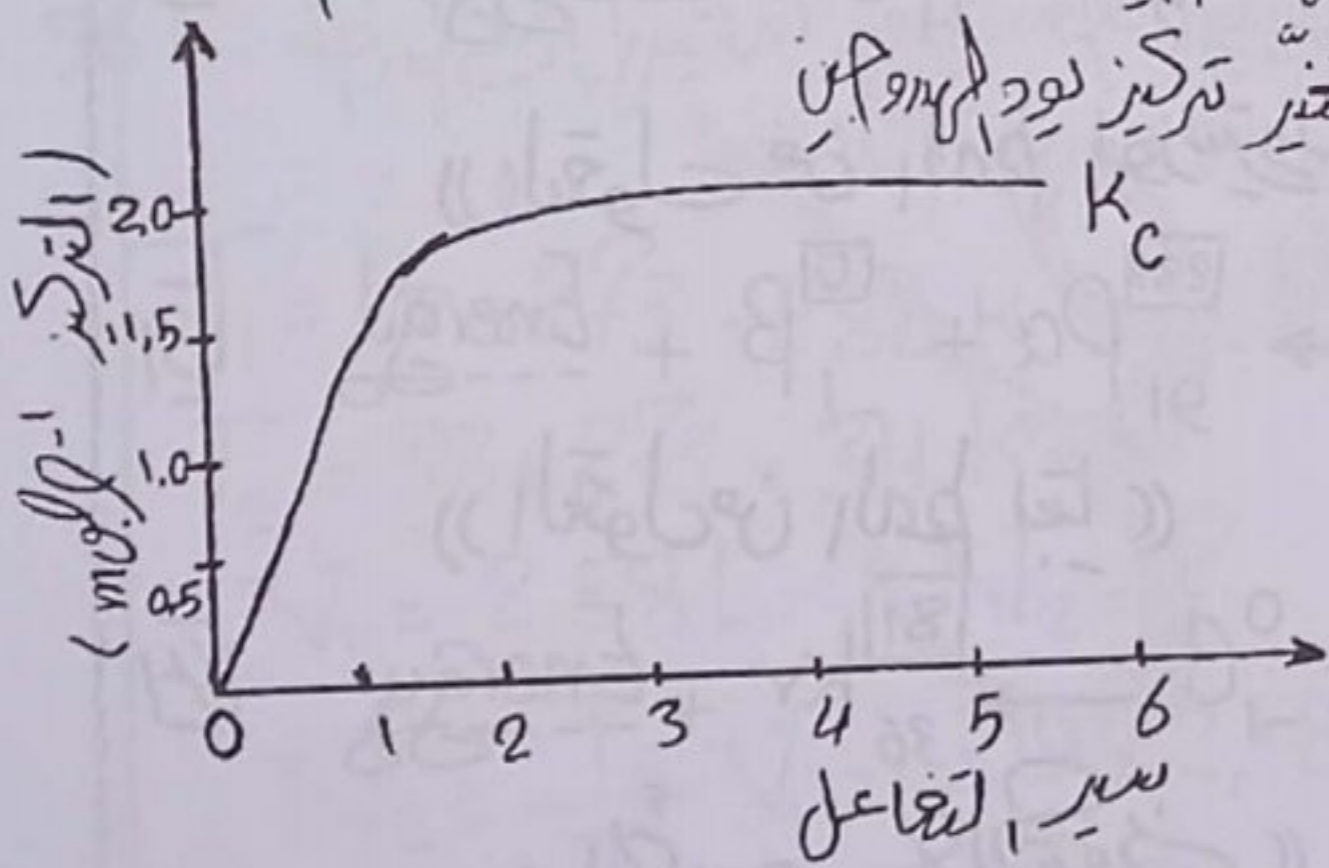 تغيّر تركيز يود الهيدروجين
K_C
التركيز (mol.l⁻¹)
2,0
1,5
1,0
0,5
0 1 2 3 4 5 6
سير التفاعل